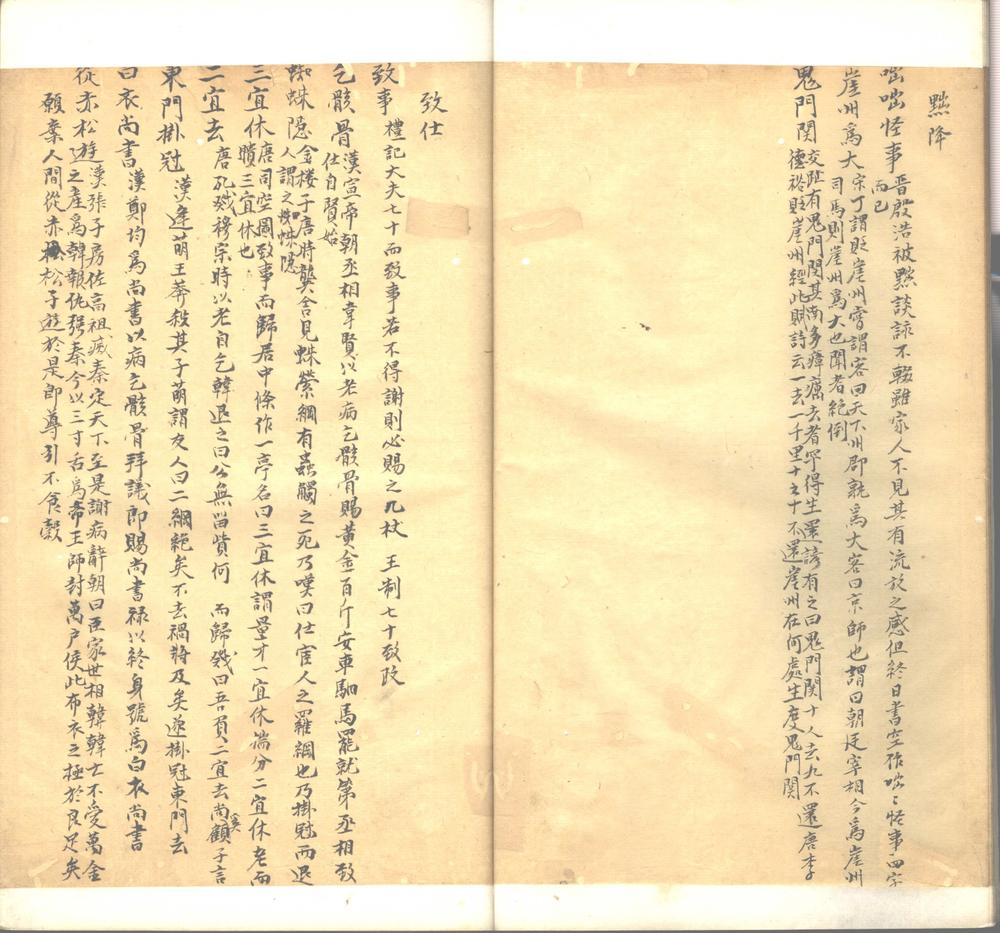 黜降
咄咄怪事晋殷浩被黜談詠不輟雖家人不見其有流放之感但終日書空作咄〻怪事四字
而已
崖州爲大宋丁謂貶崖州嘗謂客曰天下州郡孰爲大客曰京師也謂曰朝廷宰相今爲崖州
司馬則崖州爲大也聞者絶倒
鬼門関交趾有鬼門関其南多瘴癘去者罕得生還諺有之曰鬼門関十人去九不還唐李
德裕貶崖州經此賦詩云一去一千里十之十不還崖州在何處生度鬼門関
致仕
致事禮記大夫七十而致事若不得謝則必賜之几杖 王制七十致政
乞骸骨漢宣帝朝丞相韋賢以老病乞骸骨賜黃金百斤安車駟馬罷就第丞相致
仕自賢始
蜘蛛隱金楼子唐時龔舍見蛛縈網有蟲觸之死乃嘆曰仕宦人之羅網也乃掛冠而退
人謂之蜘蛛隱
三宜休唐司空圖致事而歸居中條作一亭名曰三宜休謂量才一宜休揣分二宜休老而
聵三宜休也
二宜去唐孔戣穆宗時以老自乞韓退之曰公無留貲何 而歸戣曰吾負二宜去尚顧子言
奚
東門掛冠漢逢萌王莽殺其子萌謂友人曰三綱絶矣不去禍將及矣遂掛冠東門去
白衣尚書漢鄭均爲尚書以病乞骸骨拜議郎賜尚書禄以終身號爲白衣尚書
從赤松遊漢張子房佐高祖滅秦定天下至是謝病辭朝曰臣家世相韓韓士不受萬金
之産爲韓報仇强秦今以三寸舌爲帝王師封萬户侯此布衣之極於良足矣
願棄人間從赤松子遊於是即導引不食穀